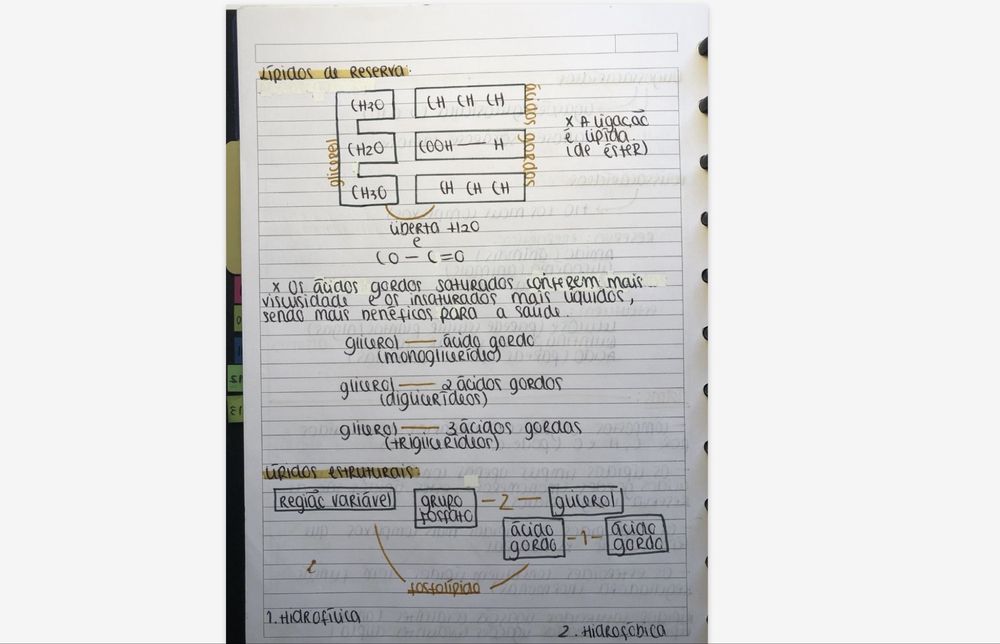 Lípidos de reserva:
CH3O CH CH CH
CH2O COOH — H
CH3O CH CH CH
glicerol
ácidos gordos
x A ligação
é lípida.
(de éster)
liberta H2O
e
CO — C=O
x Os ácidos gordos saturados conferem mais
viscosidade e os insaturados mais líquidos,
sendo mais benéficos para a saúde.
glicerol — ácido gordo
(monoglicerídeo)
glicerol — 2 ácidos gordos
(diglicerídeos)
glicerol — 3 ácidos gordas
(triglicerídeos)
Lípidos estruturais:
região variável grupo fosfato — 2 — glicerol
ácido gordo -1- ácido gordo
fosfolípido
1. Hidrofílica
2. Hidrofóbica
12
13